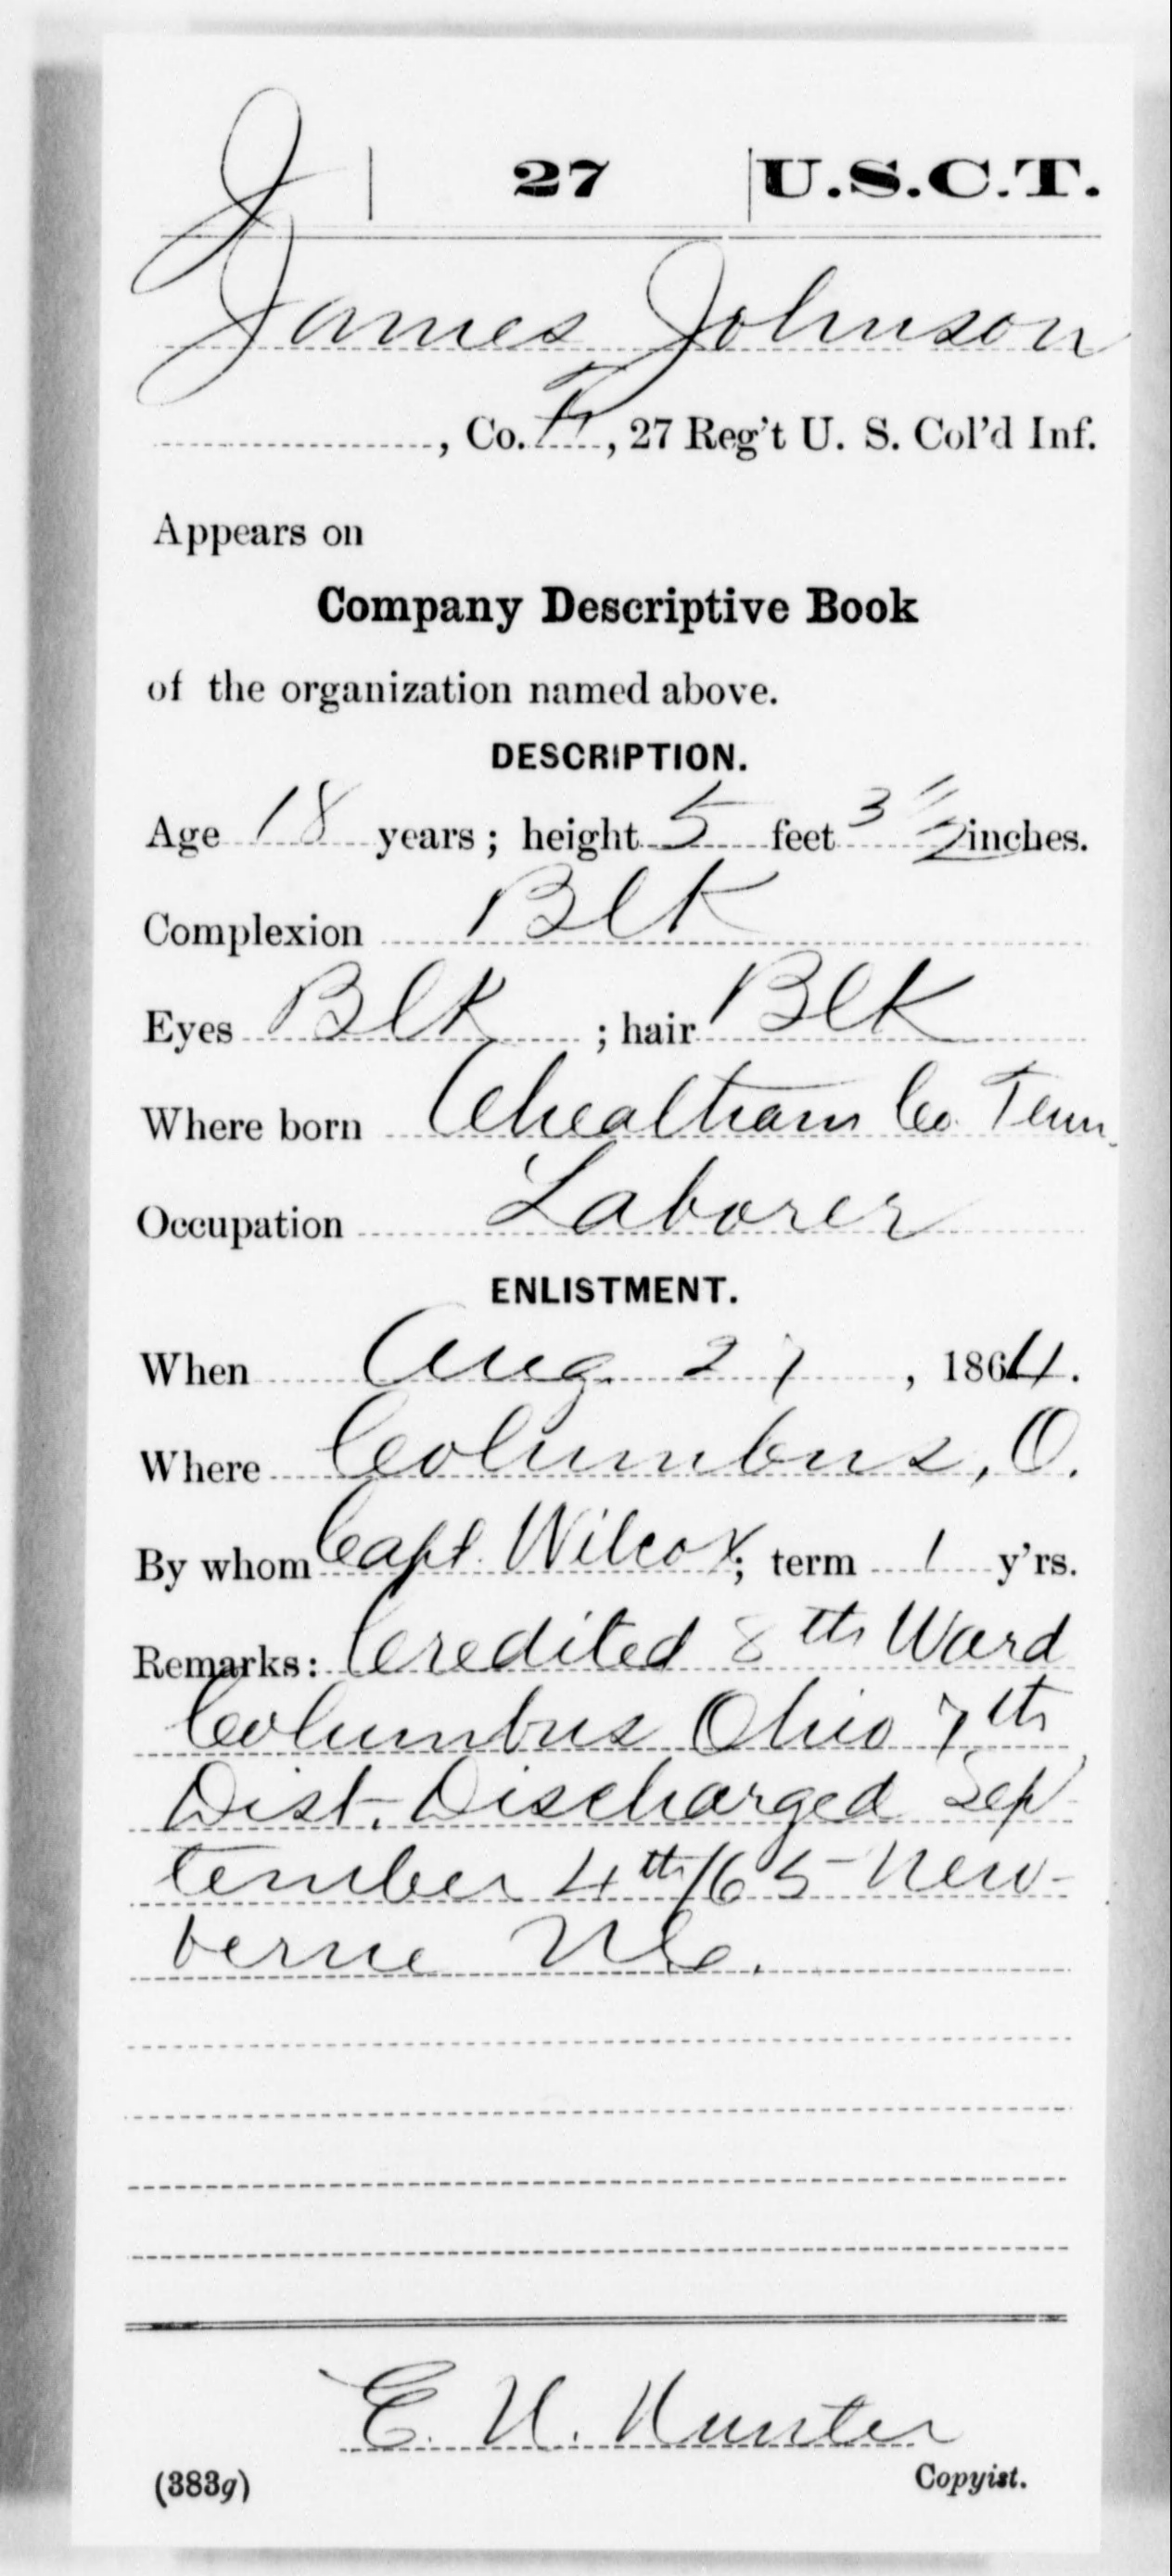 J | 27 | U.S.C.T.
James Johnson
, Co. , 27 Reg't U. S. Col'd Inf.
Appears on
Company Descriptive Book
of the organization named above.
DESCRIPTION.
Age 18 years; height 5 feet 3 1/2 inches.
Complexion Blk
Eyes Blk ; hair Blk
Where born Cheatham Co. Tenn.
Occupation Laborer
ENLISTMENT.
When Aug. 27, 1864.
Where Columbus, O.
By whom Capt. Wilcox; term 1 y'rs.
Remarks: Credited 8th Ward
Columbus Ohio 7th
Dist. Discharged Sep-
tember 4th/65 New-
berne N.C.
E. H. Hunter
(383g) Copyist.